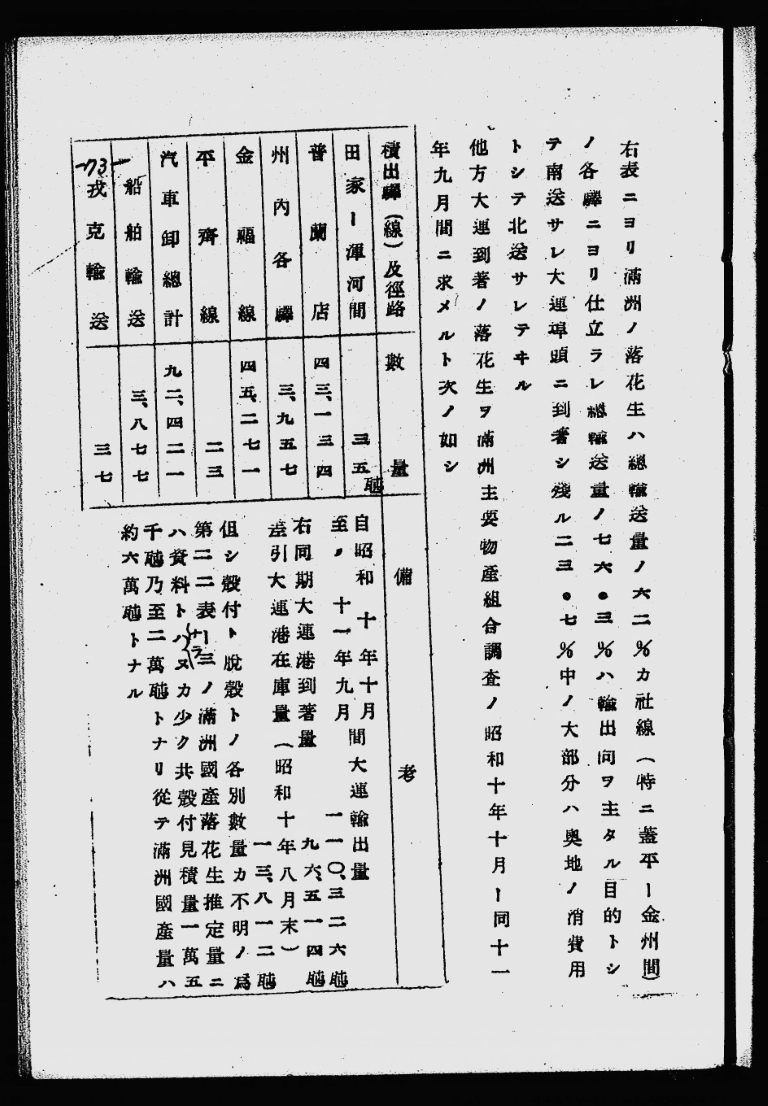 右表ニヨリ滿洲ノ落花生ハ總輸送量ノ六二%カ社線(特ニ蓋平ー金州間)
ノ各驛ニヨリ仕立ラレ總輸送量ノ七六●三%ハ輸出向ヲ主タル目的トシ
テ南送サレ大連埠頭ニ到著シ殘ル二三●七%中ノ大部分ハ奧地ノ消費用
トシテ北送サレテヰル
他方大連到著ノ落花生ヲ滿洲主要物產組合調査ノ昭和十年十月ー同十一
年九月間ニ求メルト次ノ如シ
積出驛(線)及徑路 數量 備考
田家ー渾河間 三五瓲
普蘭店 四三、一三四
州內各驛 三、九五七
金福線 四五、二七一
平齊線 二三
汽車卸總計 九二、四二一
船舶輸送 三、八七七
戎克輸送 三七
自昭和十年十月
至〃十一年九月間大連輸出量
一一〇、三二六瓲
右同期大連港到著量 九六、五一四瓲
差引大連港在庫量(昭和十年八月末)
一三、八一二瓲
但シ殼付ト脫殼トノ各別數量カ不明ノ爲
第二二表ー三ノ滿洲國產落花生推定量ニ
ハ資料トハナラヌカ少ク共殼付見積量一萬五
千瓲乃至二萬瓲トナリ從テ滿洲國產量ハ
約六萬瓲トナル
—73—